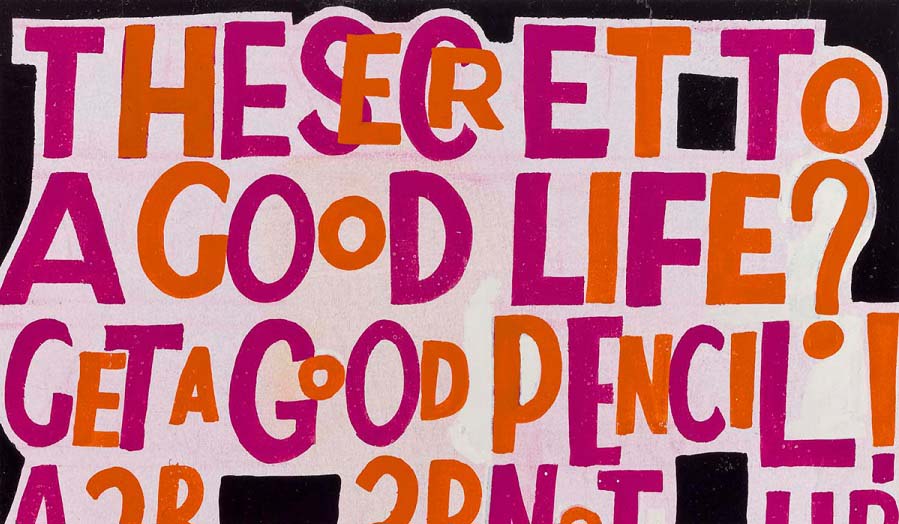 THE SECRET TO
A GOOD LIFE?
GET A GOOD PENCIL!